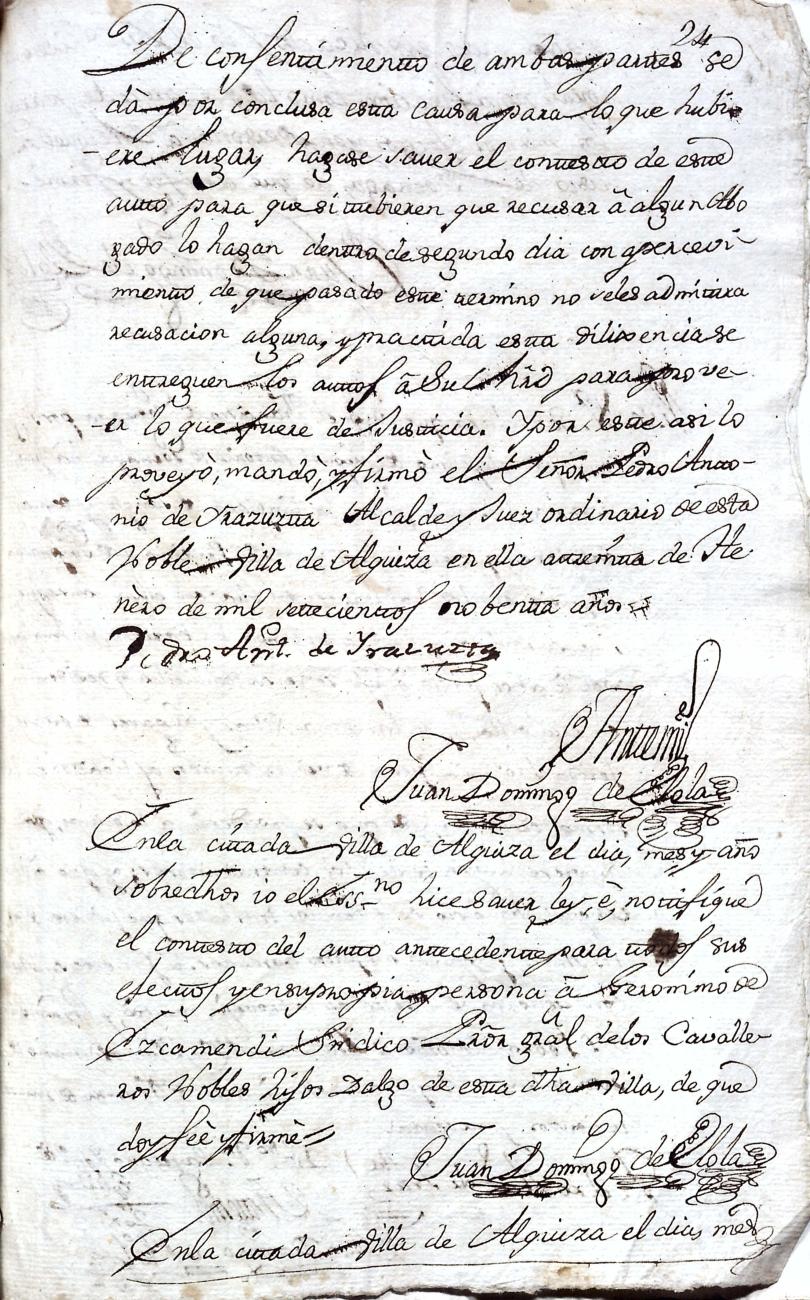 24
De consentimientto de ambas parttes se
dà por conclusa estta causa para lo que hubi-
ere lugar, hagase saver el conttestto de estte
autto para que si ttubieren que recusar â algun Abo
gado lo hagan denttro de segundo dia con apercevi-
mientto de que pasado estte ttermino no seles admittira
recusacion alguna, y practticada estta dilixencia se
enttreguen los auttos â Su Mrd para prove-
er lo que fuere de Justticia. Y por estte asi lo
proveyò, mandò, y firmò el Señor Pedro Antto-
nio de Yrazuztta Alcalde y Juez ordinario de esta
Noble Villa de Alquiza en ella a ttreintta de He
nero de mil settecienttos nobentta años
Pedro Antt. de Yrazuzta
Antte mi
Juan Domingo de Elola
En la cittada Villa de Alquiza el dia, mes y año
sobredhos io el Ess.no hice saver ley, è, nottifiquè
el conttestto del autto anttecedentte para ttodos sus
efecttos y en su propia persona â Geronimo de
Ezcamendi Sindico Pror gral delos Cavalle-
ros Nobles hijos Dalgo de estta dtha Villa, de que
doy feè y firmè
Juan Domingo de Elola
En la cittada Villa de Alquiza el dia, mes